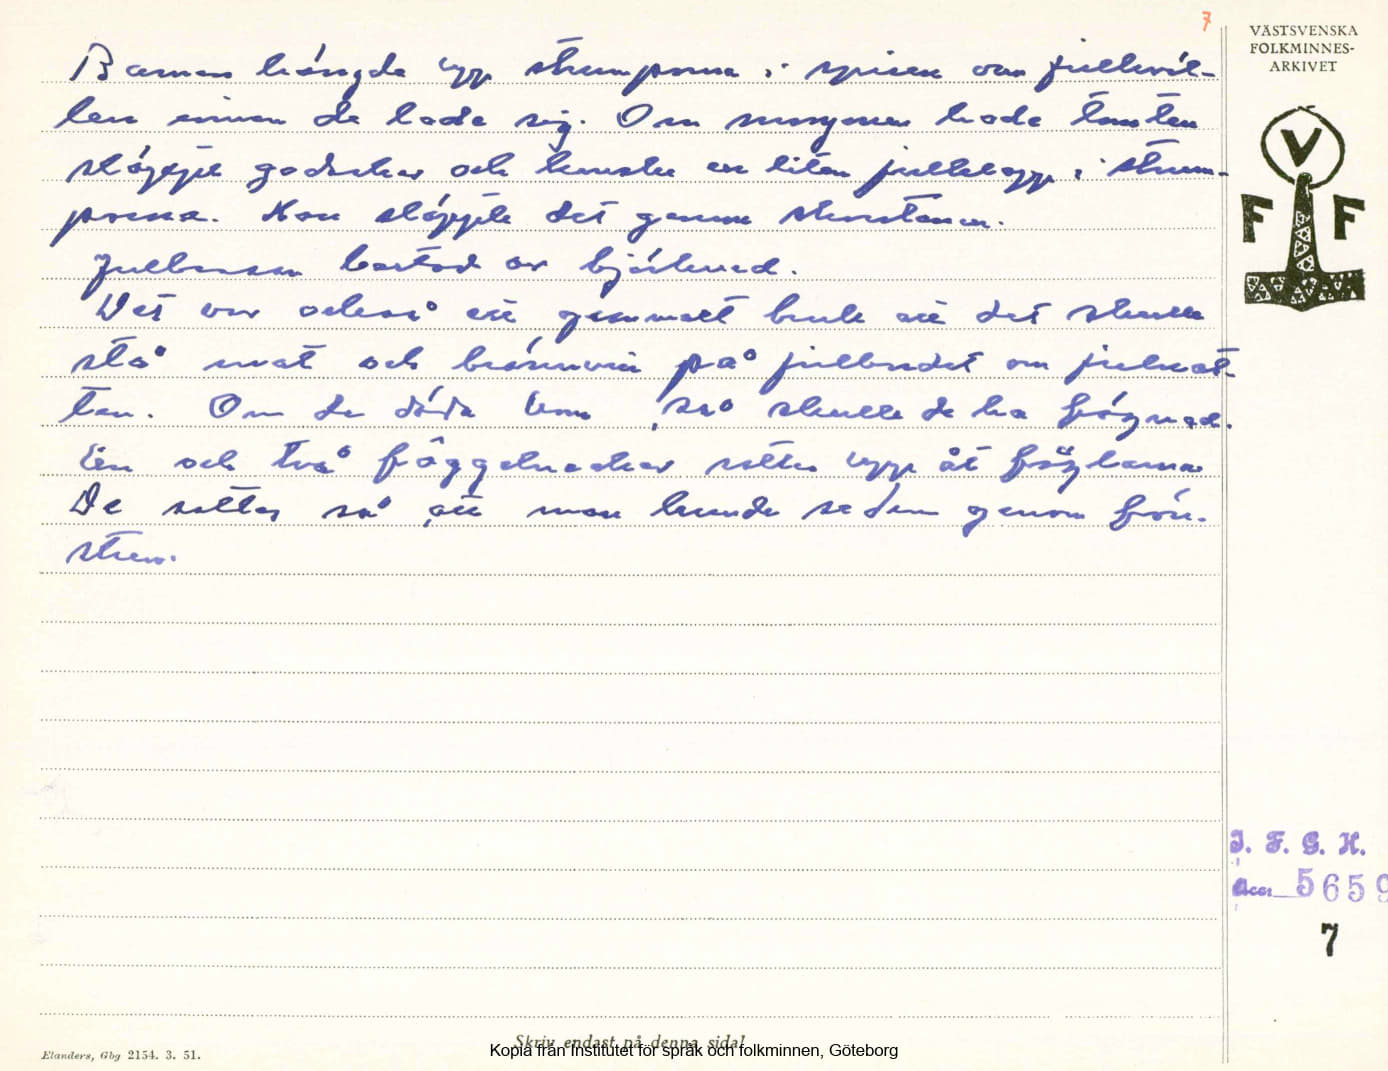 7
VÄSTSVENSKA
FOLKMINNES-
ARKIVET
V
F F
Barnen hängde upp strumporna i spisen om julkväl-
len innan de lade sig. Om morgonen hade tomten
släppt godsaker och kanske en liten julklapp i strum-
porna. Han släppte det genom skorstenen.
Julbrasan bestod av björkved.
Det var också ett gammalt bruk att det skulle
stå mat och brännvin på julbordet om julnat-
ten. Om de döda kom, så skulle de ha fägnad.
En och två fåggelnekar sattes upp åt fåglarna
De sattes så att man kunde se dem genom fön-
stren.
I. F. G. H.
Acc. 5659
7
Elanders, Gbg 2154. 3. 51.
Skriv endast på denna sida!
Kopia från Institutet för språk och folkminnen, Göteborg